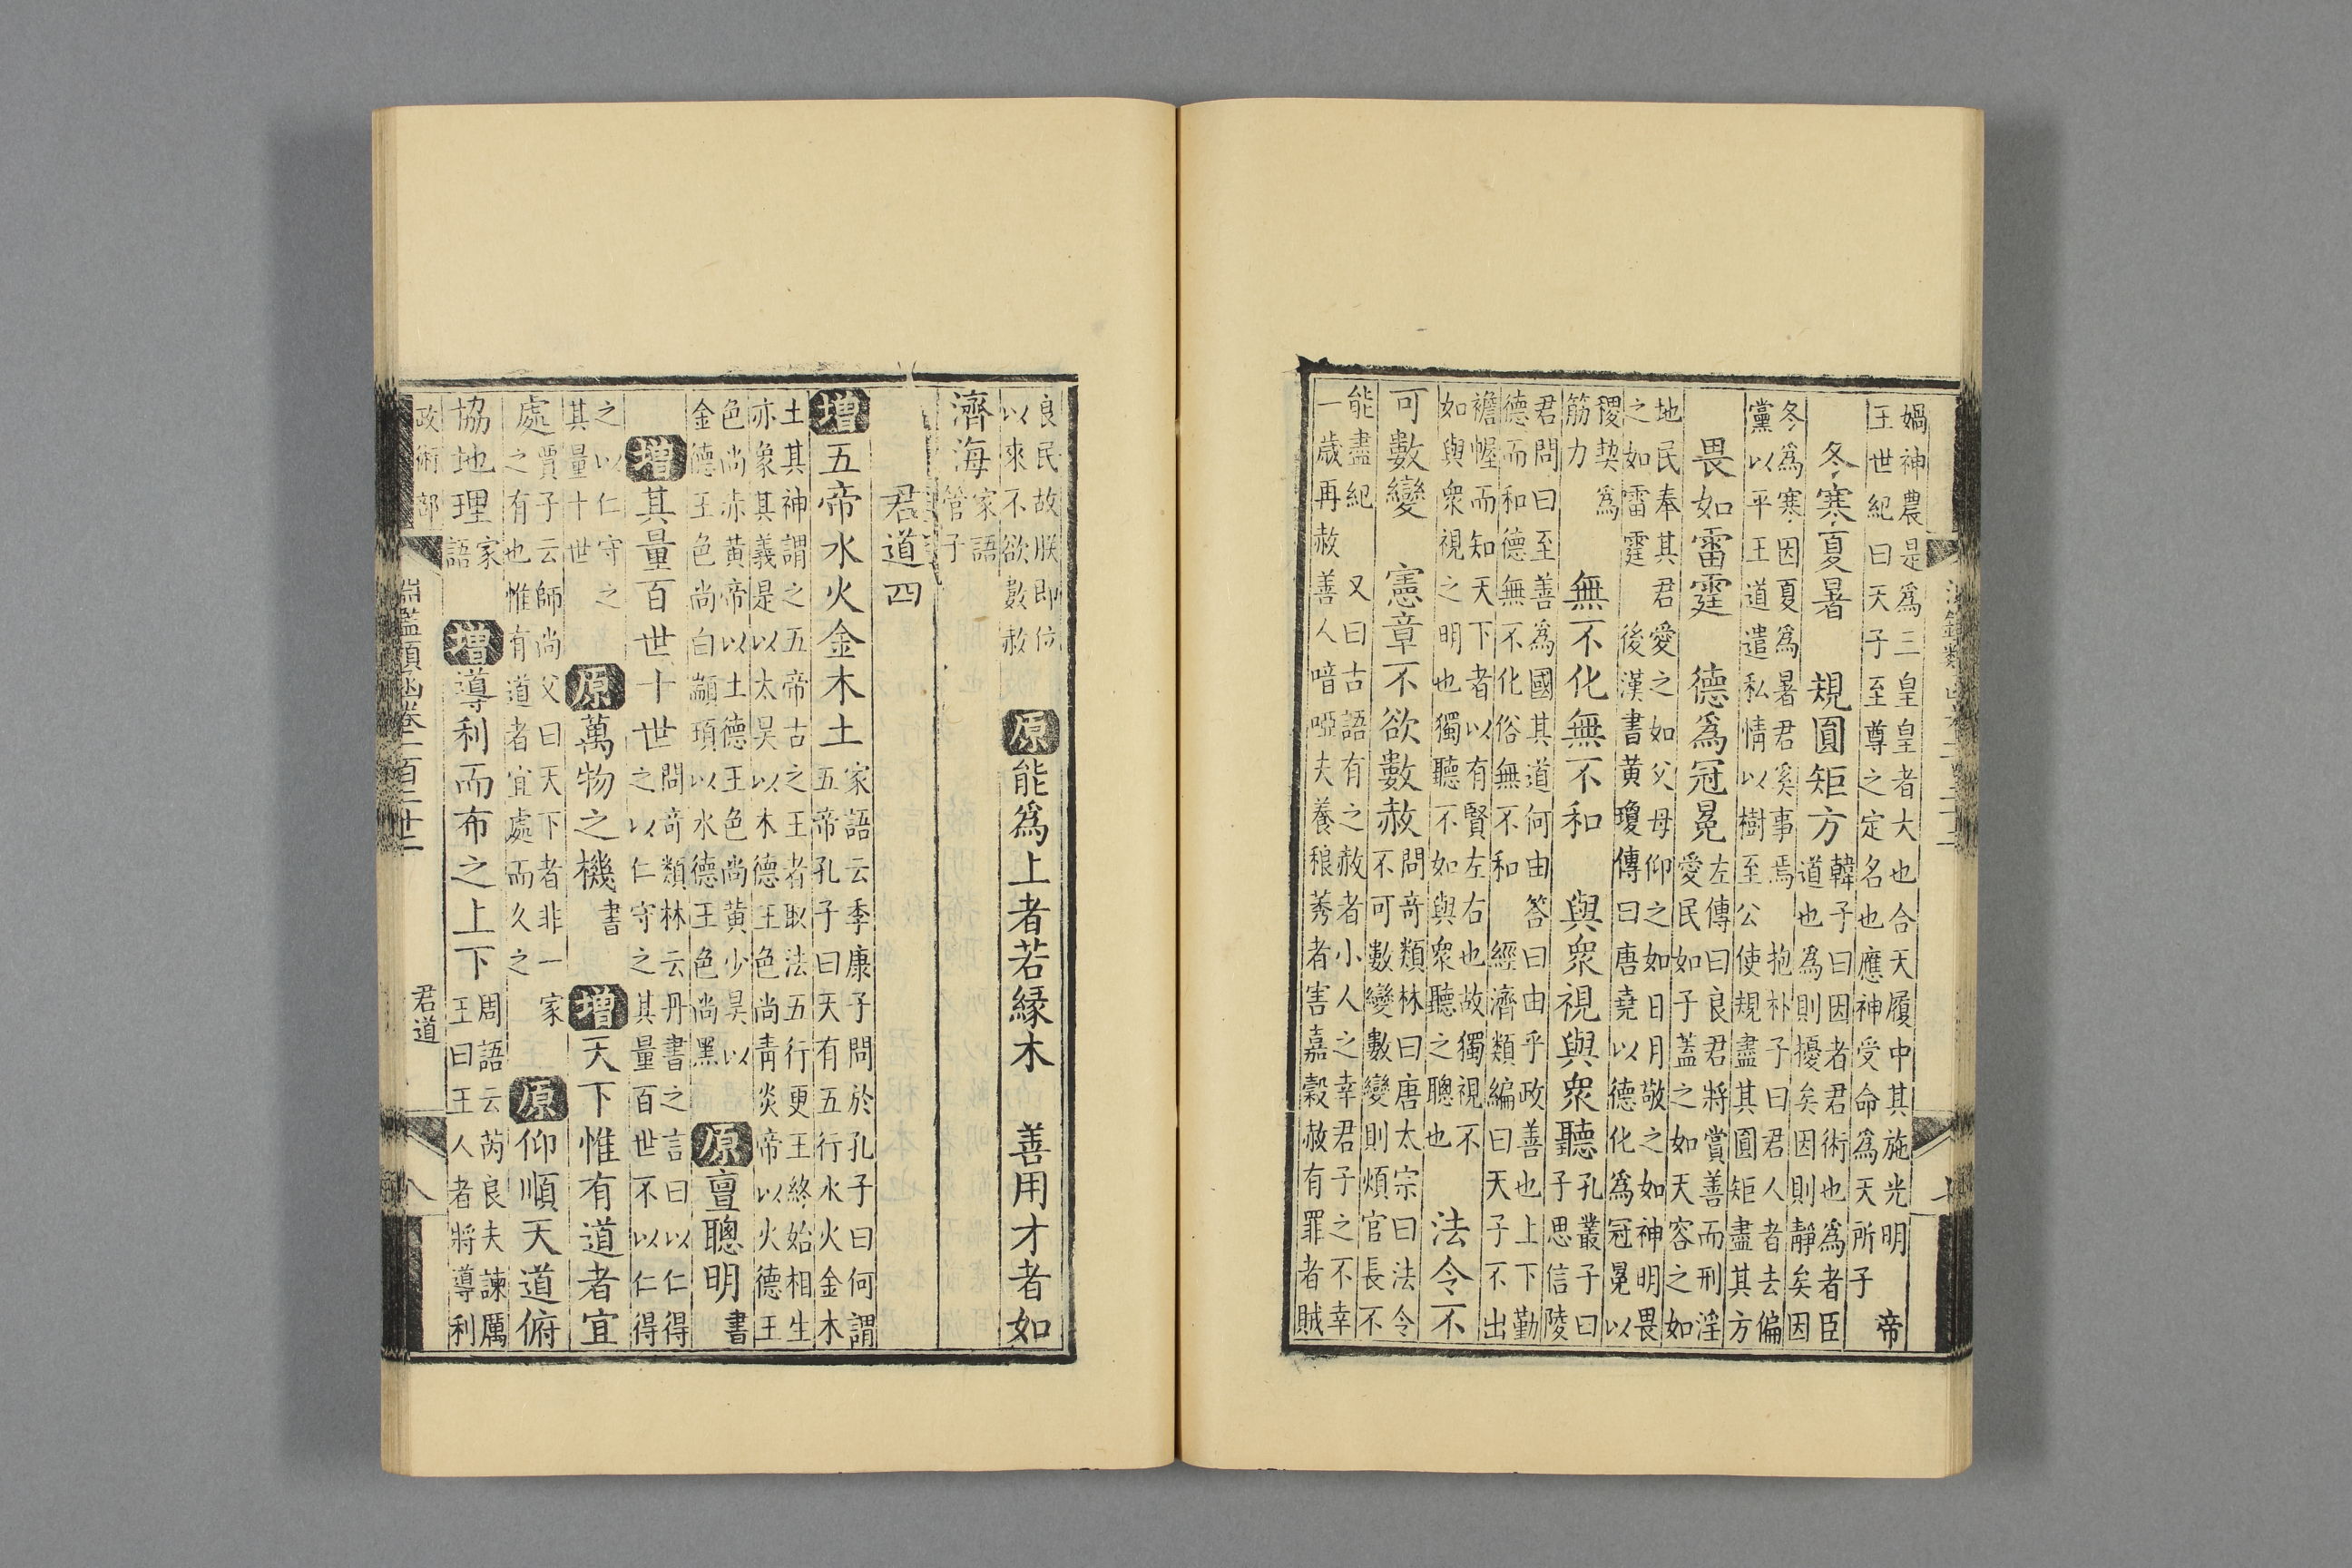 媧神農是爲三皇皇者大也合天履中其施光明 帝
王世紀曰天子至尊之定名也應神受命爲天所子
冬寒夏暑 規圓矩方 韓子曰因者君術也爲者臣道也爲則擾矣因則靜矣因
冬爲寒因夏爲暑君奚事焉 抱朴子曰君人者去偏
黨以平王道遣私情以樹至公使規盡其圓矩盡其方
畏如雷霆 德爲冠冕 左傳曰良君將賞善而刑淫愛民如子蓋之如天容之如
地民奉其君愛之如父母仰之如日月敬之如神明畏
之如雷霆 後漢書黄瓊傳曰唐堯以德化爲冠冕以
稷契爲筋力 無不化無不和 與衆視與衆聽 孔叢子曰子思信陵
君問曰至善爲國其道何由答曰由乎政善也上下勤
德而和德無不化俗無不和 經濟類編曰天子不出
襜幄而知天下者以有賢左右也故獨視不如與衆視之明也獨聽不如與衆聽之聰也 法令不
可數變 憲章不欲數赦 問奇類林曰唐太宗曰法令不可數變數變則煩官長不
能盡紀 又曰古語有之赦者小人之幸君子之不幸
一歲再赦善人喑啞夫養稂莠者害嘉穀赦有罪者賊
良民故朕即位以來不欲數赦 原能爲上者若緣木 善用才者如
濟海 家語管子
君道四
增五帝水火金木土 家語云季康子問於孔子曰何謂五帝孔子曰天有五行水火金木
土其神謂之五帝古之王者取法五行更王終始相生
亦象其義是以太昊以木德王色尚靑炎帝以火德王
色尚赤黄帝以土德王色尚黄少昊以金德王色尚白顓頊以水德王色尚黑 原亶聰明 書
增其量百世十世 問奇類林云丹書之言曰以仁得之以仁守之其量百世不以仁得
之以仁守之其量十世 原萬物之機 書 增天下惟有道者宜
處 賈子云師尚父曰天下者非一家之有也惟有道者宜處而久之 原仰順天道俯
協地理 家語 增導利而布之上下 周語云芮良夫諫厲王曰王人者將導利
政術部 淵鑑類函卷一百二十二 君道 八